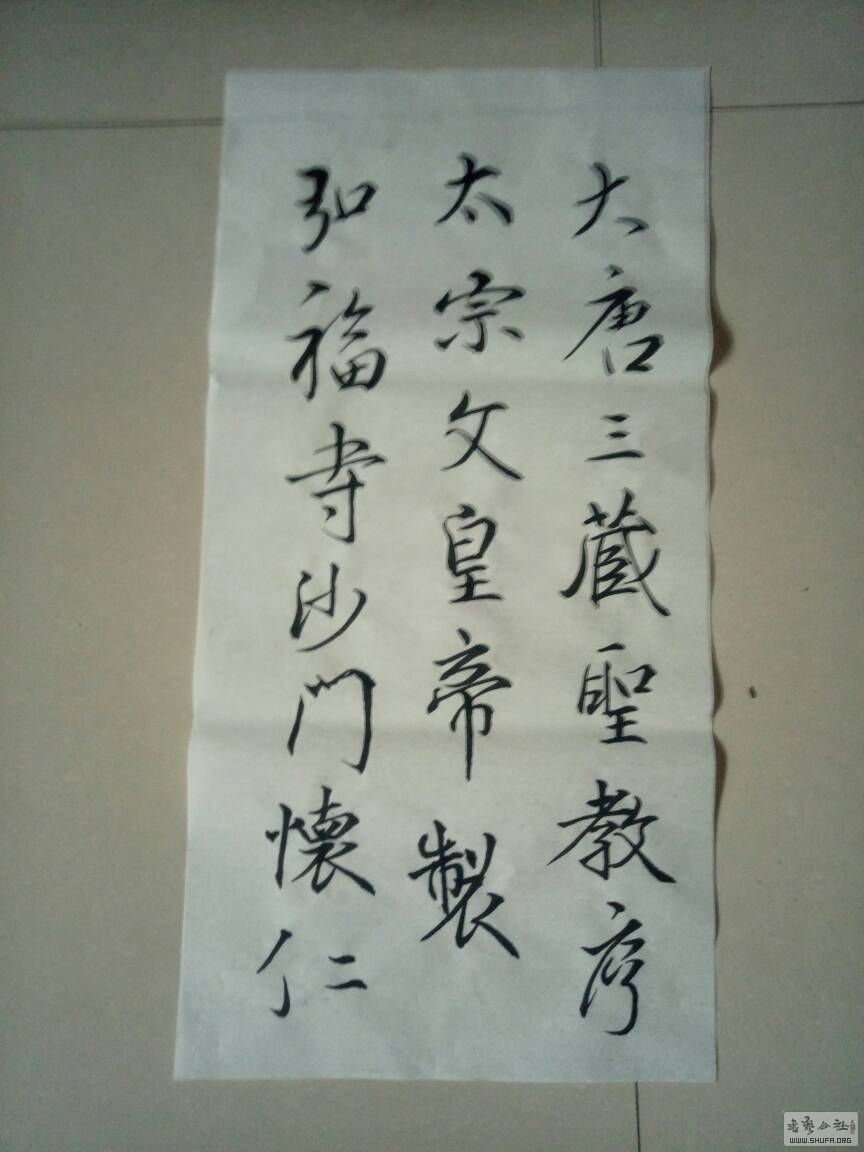 大唐三蔵聖教序
太宗文皇帝製
弘福寺沙門懷仁
書藝公社
WWW.SHUFA.ORG